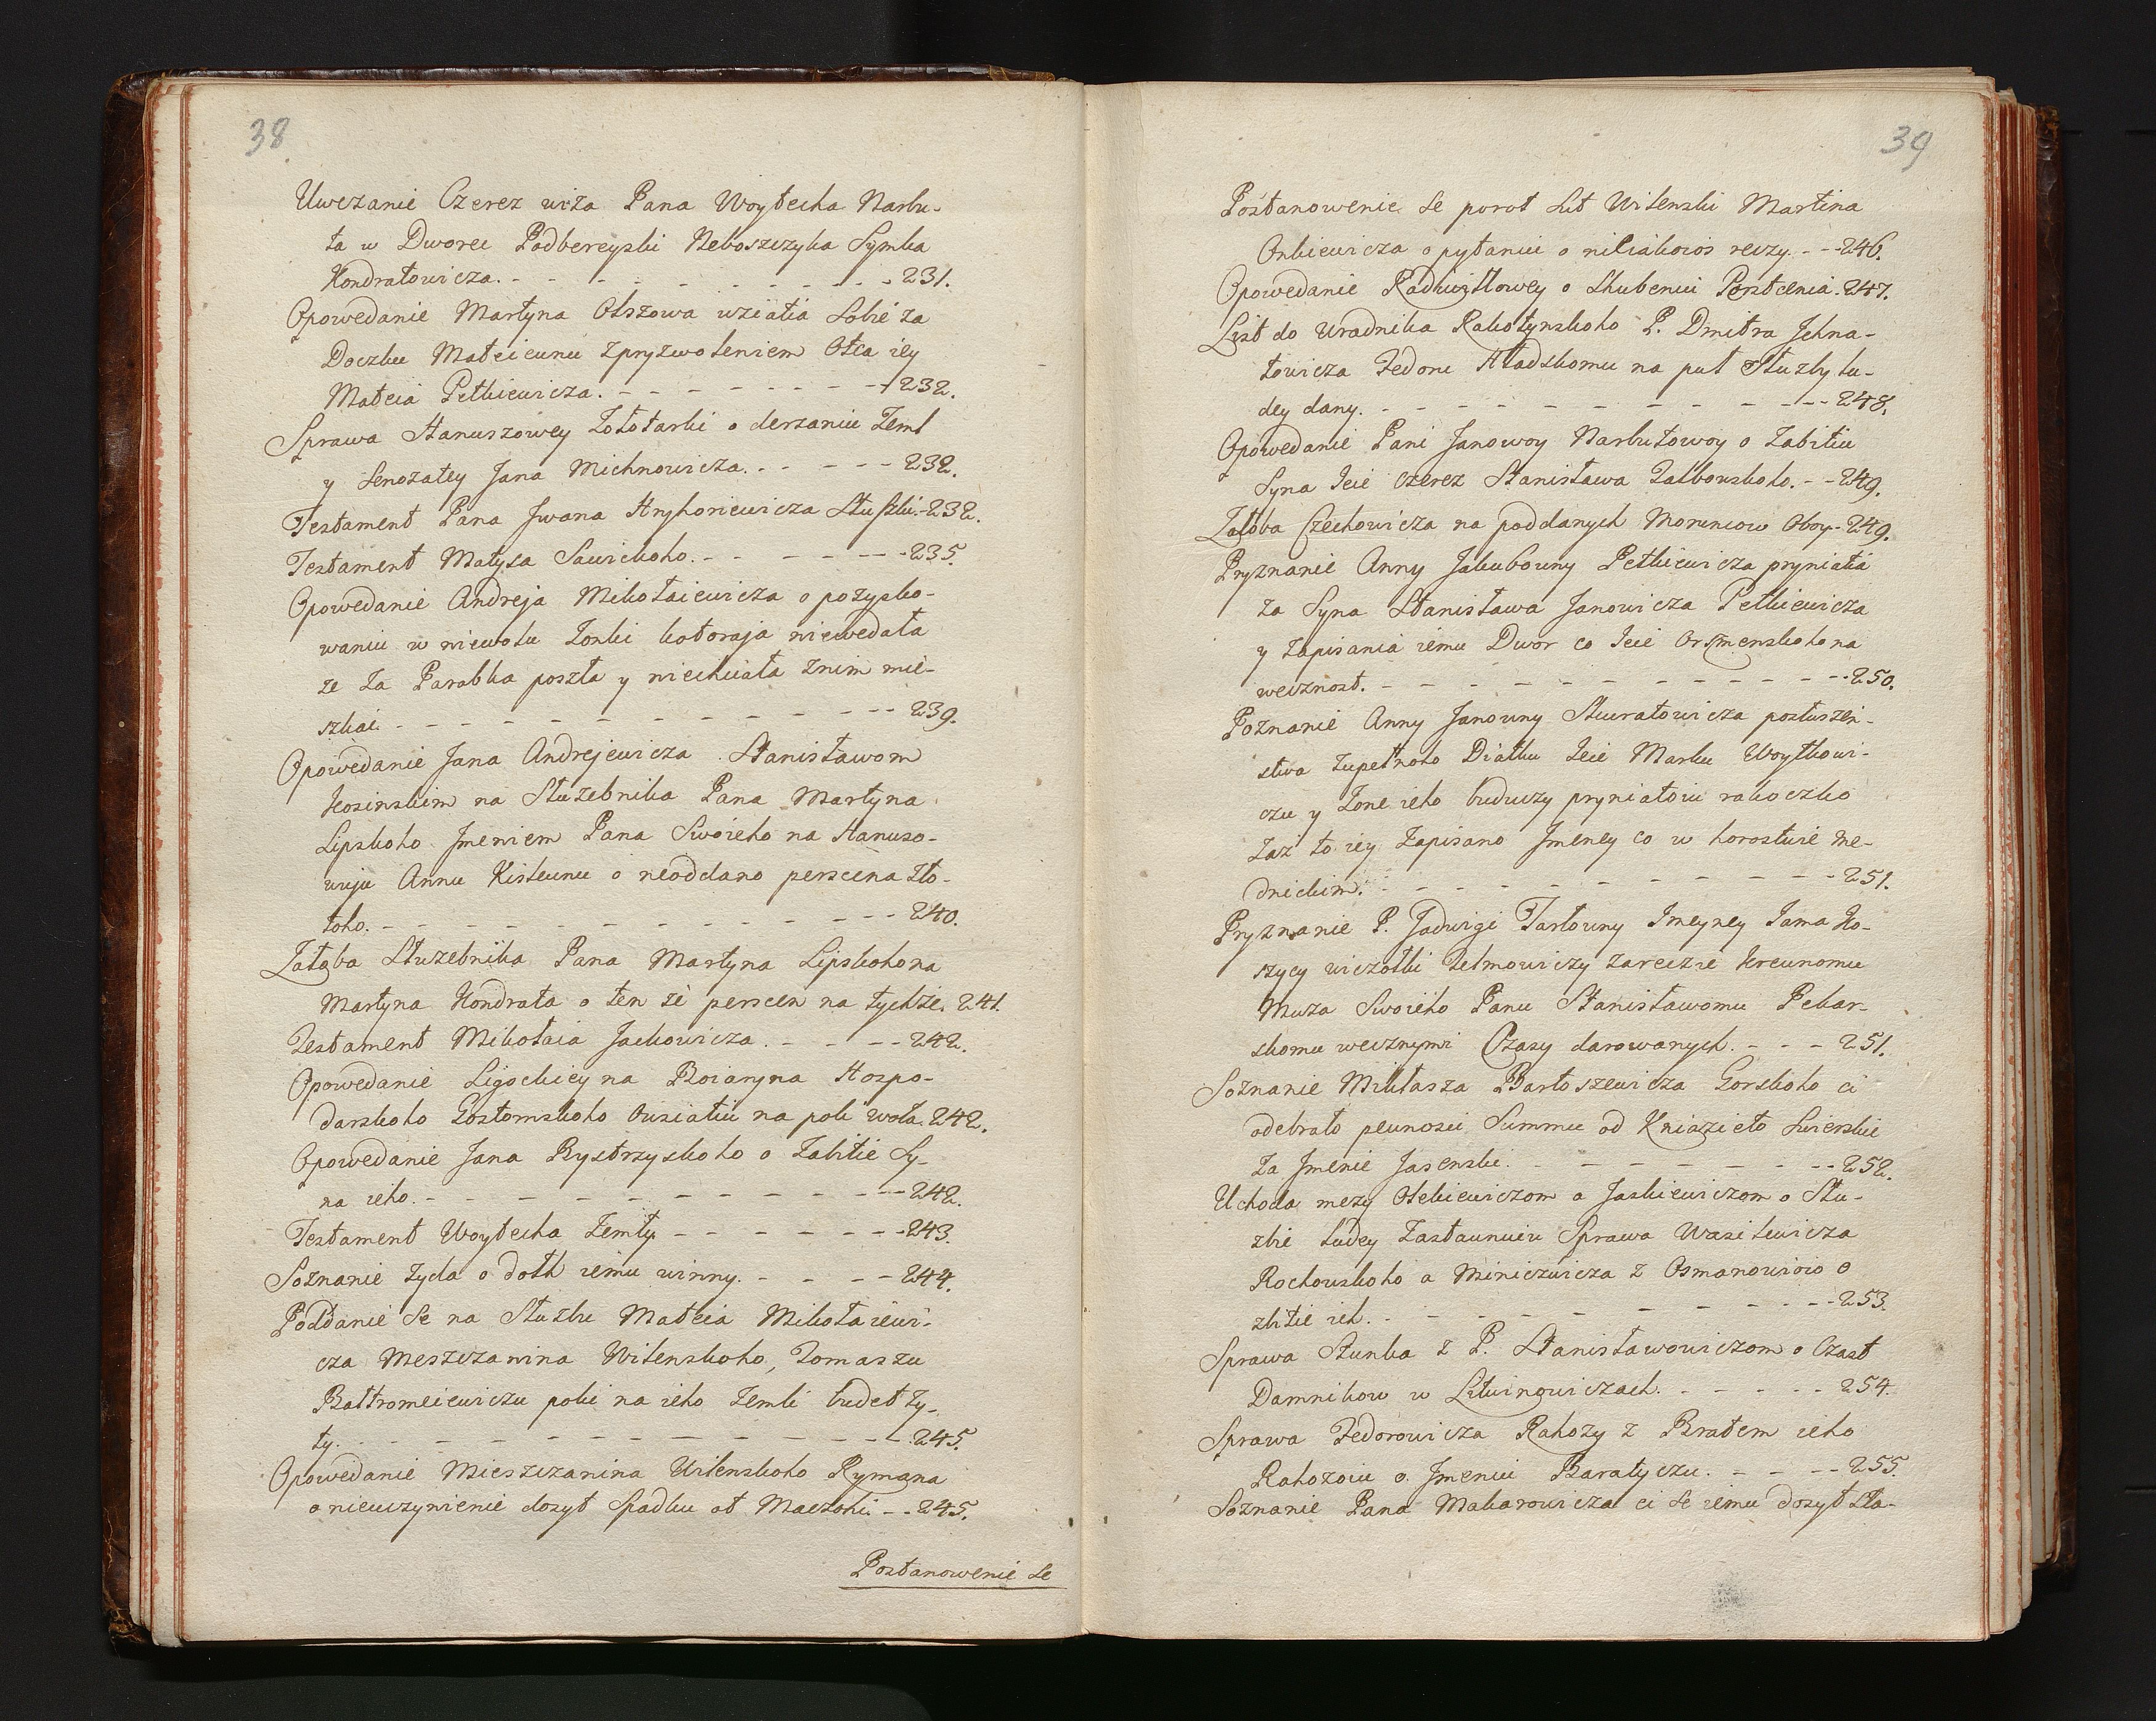 38
Uwezanie Czerez wiża Pana Woytecha Narbu-
ta w Dworcu Podbereyski Neboszczyka Symka
Kondratowicza. - - - - - - - - - 231.
Opowedanie Martyna Olszowa wziatia Sobie za
Doczku Mateieunu z pryzwoleniem Otca iey
Mateia Petkiewicza. - - - - - - - - 232.
Sprawa Hanuszowey Zołotarki o derzaniu Zeml
y Senozatey Jana Michnowicza. - - - - - 232.
Testament Pana Jwana Hryhoriewicza Słuszki. - 232.
Testament Matysa Sawickoho. - - - - - - 235.
Opowedanie Andreja Mikołaiewicza o pozysko-
waniu w niewolu Zonki kotoraja niewedała
ze za Parobka poszła y niechciała znim mie-
szkac - - - - - - - - - - - - 239.
Opowedanie Jana Andrejewicza Stanisławom
Kosinskim na Słuzebnika Pana Martyna
Lipskoho Jmeniem Pana Swoieho na Hanuso-
wuju Annu Kisleunu o neoddano perscena zło-
toho. - - - - - - - - - - - - 240.
Załoba Słuzebnika Pana Martyna Lipskoho na
Martyna Kondrata o ten zè perscen na tychże. 241.
Testament Mikołaia Jackowicza. - - - - 242.
Opowedanie Ligockiey na Boiaryna Hospo-
darskoho Gostomskoho Ousiatiu na poli woła. 242.
Opowedanie Jana Bystrzyskoho o Zabitie Sy-
na ieho. - - - - - - - - - - - 242.
Testament Woytecha Zemły - - - - - - 243.
Soznanie Zyda o dołh iemu winny. - - - - 244.
Poddanie Se na Słuzbu Mateia Mikołaiewi-
cza Meszczanina Wilenskoho, Tomaszu
Bałtromeiewiczu poki na ieho Zemli budet zy-
ty. - - - - - - - - - - - - - 245.
Opowedanie Mieszczanina Wilenskoho Rymana
o nieuczynienie dosyt Spadku ot Maczohi - - 245.
Postanowenie Se
39
Postanowenie Se porot Sut Wilenski Martina
Onkiewicza o pytaniu o reczy. - - 246.
Opowedanie o Shubeniu Perstcenia. 247.
List do Uradnika Rakotynskoho P. Dmitra Jhna-
towicza Fedoru Hładskomu na put Słuzby lu-
dey dany. - - - - - - - - - - - 248.
Opowedanie Pani Janowoy Narbutowoy o Zabitiu
Syna Jeie Czerez Stanisława Zalborskoho. - - 249.
Załoba Czechowicza na poddanych Moruncow Oboy. - 249.
Pryznanie Anny Jakubowny Petkiewicza pryniatia
za Syna Stanisława Janowicza Petkiewicza
y Zapisania iemu Dwor co Jeie Oszmenskoho na
wecznost. - - - - - - - - - - - 250.
Poznanie Anny Janowny Skuratowicza posłuszen-
stwa Zupełnoho Diatku Jeie Marku Woytkowi-
czu y Zone ieho buduczy pryniatoiu
Zaż to iey Zapisano Jmeney co w horostwie Me-
dnickim. - - - - - - - - - - - 251.
Pryznanie P. Jadwigi Tarłowny Jmeyney Jama Ko-
Zareczie Kreunomu
Muza Swoieho Panu Stanisławomu Pekar-
skomu wecznymi Czasy darowanych. - - - 251.
Soznanie Mikłasza Bartoszewicza Gorskoho ci
odebrało pewnosci Summu od Kniazieto Swirskie
za Jmenie Jasenski. - - - - - - - - 252.
Uchoda mezy Otckiewiczom a Jaskiewiczom o Słu-
zbie Ludey Zastawnuiu Sprawa Wasilewicza
Rochowskoho a Miniczwicza z Osmanowoio o
zbitie ieh. - - - - - - - - - - 253.
Sprawa Stunka z P. Stanisławowiczom o Czast
Damnikow w Litwinowiczach. - - - - - 254.
Sprawa Fedorowicza Rahozy z Bratem ieho
Rahozoiu o Jmeniu Baratyczu. - - - - 255.
Soznanie Pana Makarowicza ci Se iemu dosyt Sta-